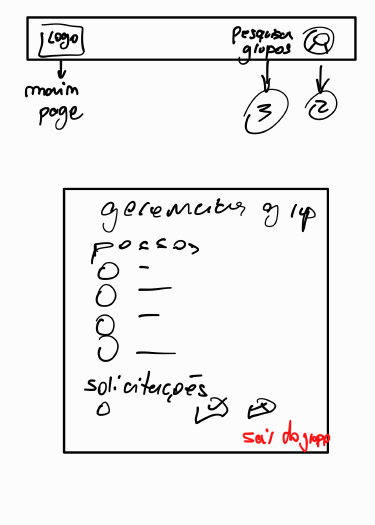 Logo
Pesquisar
grupos
main
page
3
2
gerenciar grup
pessoas
solicitações
sair do grupo